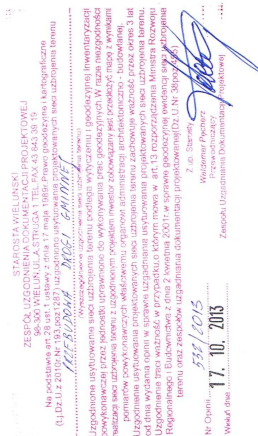 STAROSTA WIELUŃSKI
ZESPÓŁ UZGODNIENIA DOKUMENTACJI PROJEKTOWEJ
98-300 WIELUŃ, UL. A. STRUGA 1 TEL. FAX 43 843 39 19
Na podstawie art. 28 ust. 1 ustawy z dnia 17 maja 1989r. Prawo geodezyjne i kartograficzne
(t.j. Dz.U. z 2010r. Nr 193, poz. 1287) uzgadnia usytuowanie projektowanych sieci uzbrojenia terenu
PRZEBUDOWA DROGI GMINNEJ
Uzgodnione usytuowanie sieci uzbrojenia terenu podlega wytyczeniu i geodezyjnej inwentaryzacji
powykonawczej przez jednostki uprawnione do wykonywania prac geodezyjnych. W razie niezgodności
realizacji sieci uzbrojenia terenu z uzgodnionym projektem inwestor zobowiązany jest przedłożyć mapę z wynikami
pomiarów powykonawczych właściwemu organowi administracji architektoniczno - budowlanej.
Uzgodnienie usytuowania projektowanych sieci uzbrojenia terenu zachowuje ważność przez okres 3 lat
od dnia wydania opinii w sprawie uzgadniania usytuowania projektowanych sieci uzbrojenia terenu.
Uzgodnienie traci ważność w przypadku, o którym mowa w art. 13 rozporządzenia Ministra Rozwoju
Regionalnego i Budownictwa z dnia 2 kwietnia 2001r. w sprawie geodezyjnej ewidencji sieci uzbrojenia
terenu oraz zespołów uzgadniania dokumentacji projektowej (Dz.U. Nr 38 poz. 455)
Z up. Starosty
Nr Opinii 532/2013
Waldemar Pychterz
Przewodniczący
Wieluń dnia 17. 10. 2013
Zespołu Uzgadniania Dokumentacji Projektowej